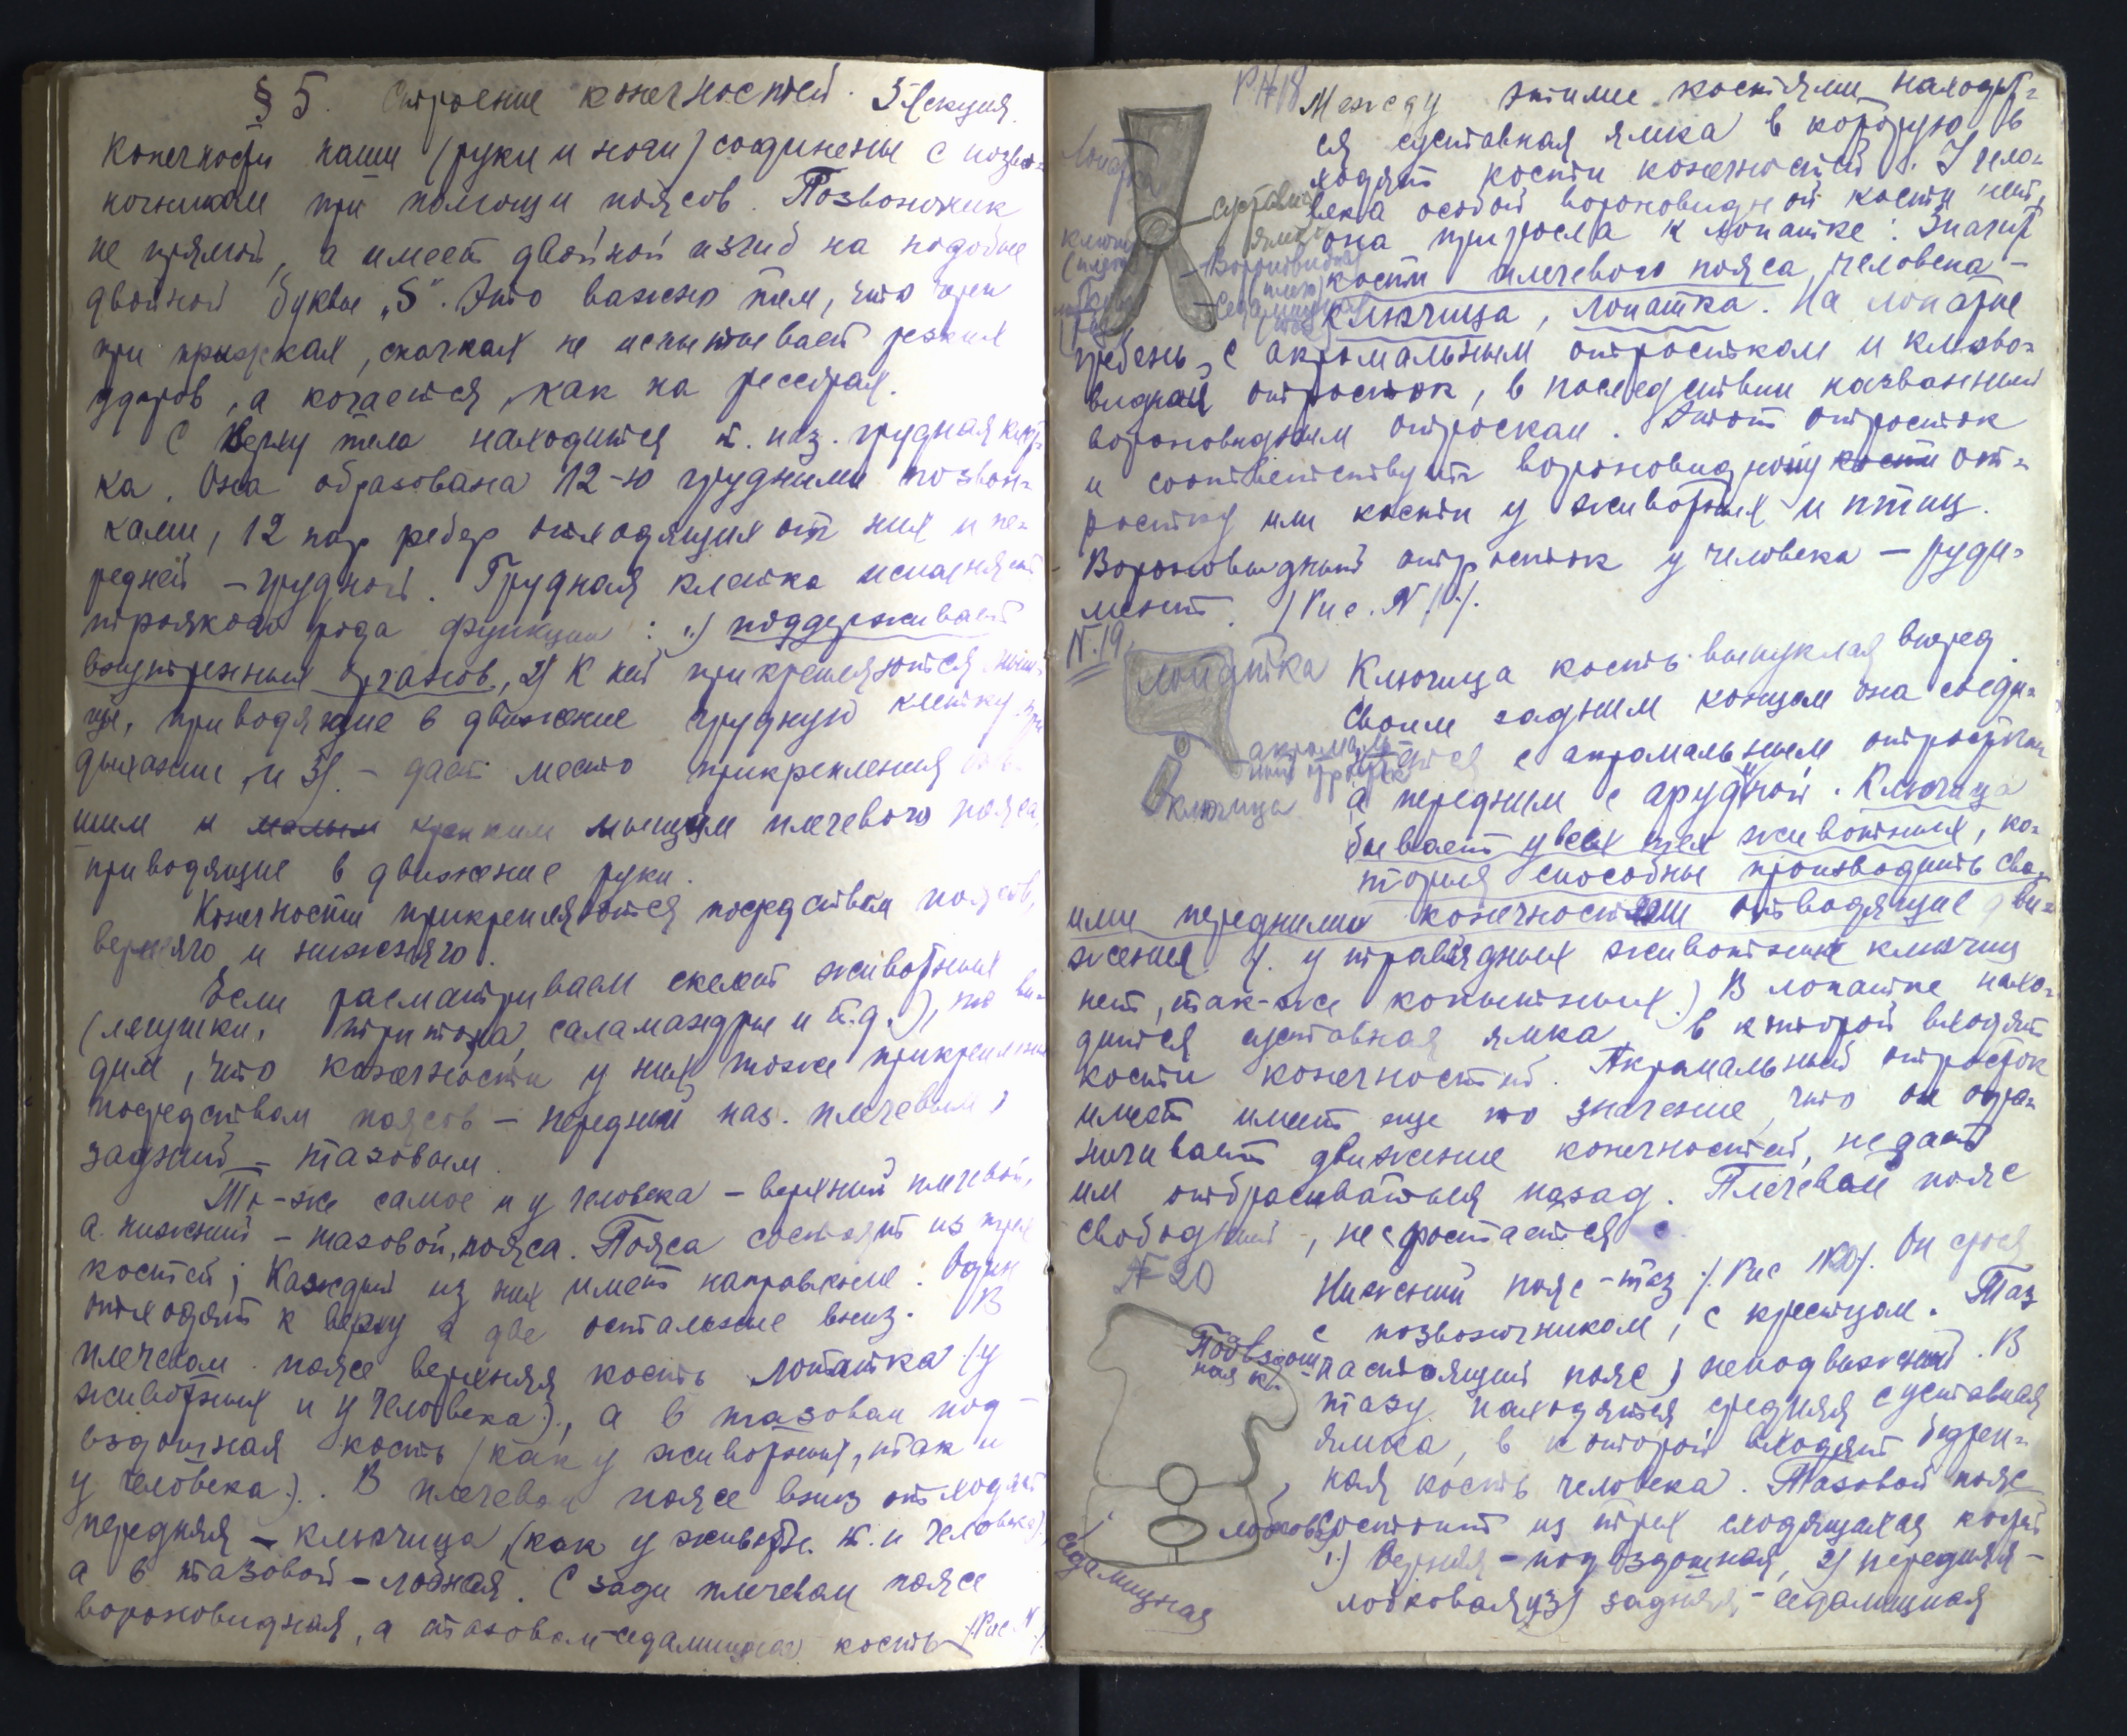 § 5. Строение конечностей. 5 лекция.
Конечности наши (руки и ноги) соединены с позво-
ночником при помощи поясов. Позвоночник
не прямой, а имеет двойной изгиб на подобие
двойной буквы „S". Это важно тем, что при
при прыжках, скачках не испытывает резких
ударов, а качается, как на рессорах.
С верху тела находится т. наз. грудная клет-
ка. Она образована 12-ю грудными позвон-
ками, 12 пар ребер отходящих от них и пе-
редней – грудной. Грудная клетка исполняет
троякого рода функции: 1.) поддерживает
внутренних органов, 2) К ней прикрепляются мыш-
цы, приводящие в движение грудную клетку при
дыхании, и 3). – дает место прикрепления
шим и малым крепким мышцам плечевого пояса,
приводящие в движение руки.
Конечности прикрепляются посредством поясов,
верхняго и нижняго.
Если расматриваем скелет животных
(лягушки, тритона, саламандры и т.д.), то ви-
дим, что конечности у них тоже прикреплены
посредством поясов – передний наз. плечевым,
задний – тазовым.
То-же самое и у человека – верхний плечевой,
а нижний – тазовой, пояса. Пояса состоят из трех
костей; Каждый из них имеет направление: Один
отходят к верху а две остальные вниз. В
плечевом поясе верхняя кость лопатка (у
животных и у человека), а в тазовом под-
вздошная кость (как у животных, так и
у человека). В плечевом поясе вниз отходит
передняя – ключица, (как у животн. т. и человека),
а в тазовой – лобная. С зади плечевом поясе
вороновидная, а тазовом – седалищная кость (Рис. N
Р № 18
Между этими костями находит-
ся суставная ямка в которую в
ходят кости конечностей. У чело-
века особой вороновидной кости нет,
она приросла к лопатке. Значит
кости плечевого пояса человека –
ключица, лопатка. На лопатке
гребень, с акромальным отростком и клюво-
видный отросток, в последствии названный
вороновидным отроском. Этот отросток
и соответствует вороновидному кости от-
ростку или кости у животных и птиц.
Вороновидный отросток у человека – руди-
мент. /Рис. N /.
Лопатка
Суставная
ямка
Вороновидная
(плеч)
Седалищная
(таз)
N. 19.
лопатка
акромаль
ный отросток
ключица
Ключица кость выпуклая вперед.
Своим задним концом она соеди-
няется с акромальным отростком
а передним с грудной. Ключица
бывает у всех тех животных, ко-
торыя способны производить сво-
ими передними конечностями отводящие дви-
жения. У травоядных животных ключиц
нет, так-же копытных.) В лопатке нахо-
дится суставная ямка в которой входят
кости конечностей. Акромальный отросток
имеет имеет еще то значение, что он огра-
ничивает движение конечностей, не дает
им отбрасываться назад. Плечевой пояс
свободный, не сростается с
№ 20
Нижний пояс – таз /. Рис №20/. Он сросся
с позвоночником, с крестцом. Таз
настоящий пояс, неподвижный. В
тазу находится средняя суставная
ямка, в которой входят бедрен-
ная кость человека. Тазовой пояс
состоит из трех сходящихся костей
1.) Верхняя – подвздошная, 2) передняя –
лобковая, и 3) задняя – седалищная
Подвздош-
ная к.
лобковая
седалищная